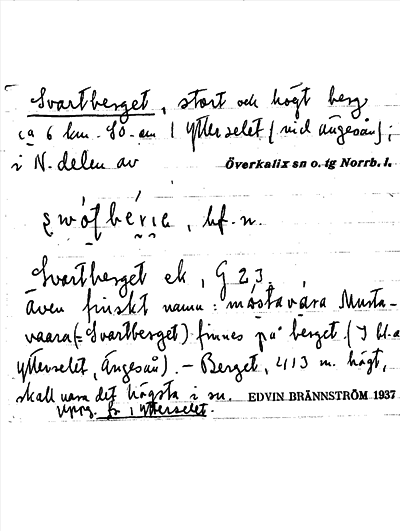 Svartberget, stort och högt berg
ca 6 km. SO. om Ytterselet (vid Ängesån);
i N. delen av Överkalix sn o. tg Norrb. l.
hf. n.
Svartberget ek, G 23.
även finskt namn: móstavára Musta-
vaara (= Svartberget) finnes på berget. (J bl.a
Ytterselet, Ängesån). – Berget, 413 m. högt,
skall vara det högsta i sn. EDVIN BRÄNNSTRÖM 1937
uppg. fr. Ytterselet.